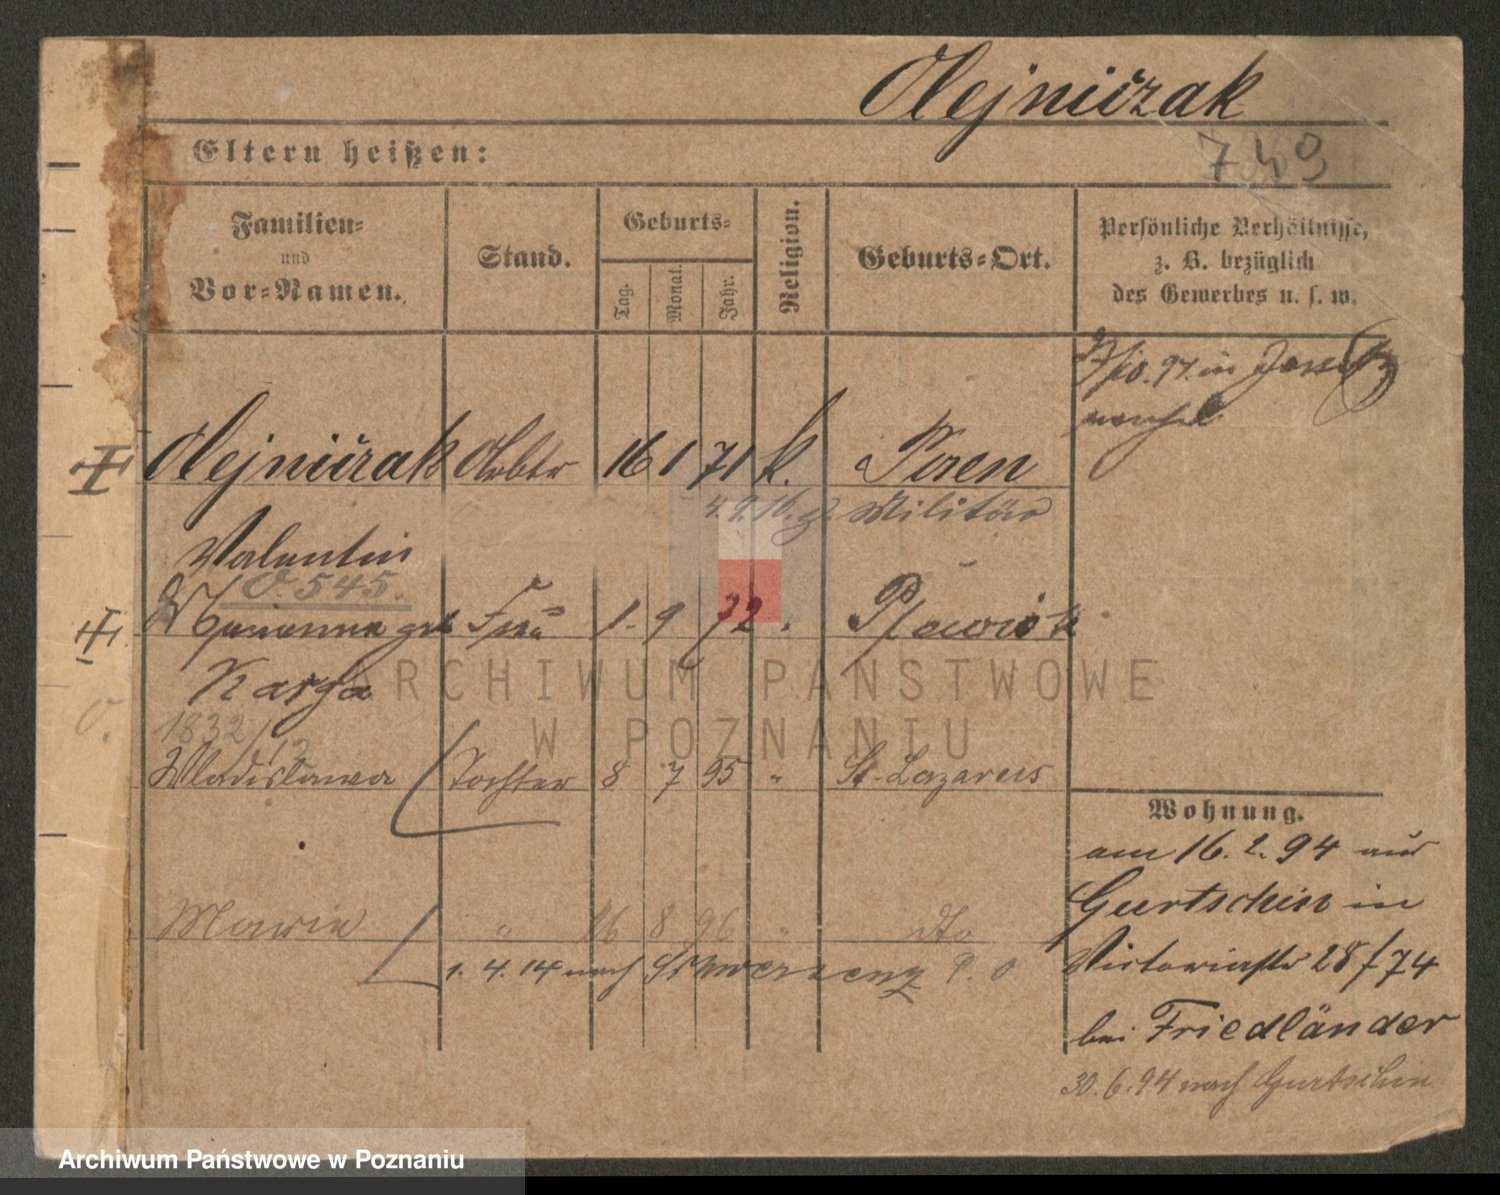 Olejniczak
749
Eltern heißen:
Familien-
und
Vor-Namen.
Stand.
Geburts-
Tag.
Monat.
Jahr.
Religion.
Geburts-Ort.
Persönliche Verhältnisse,
z. B. bezüglich
des Gewerbes u. s. w.
97. in
Olejniczak Arbtr 16 1 71 k. Posen
4.9.16. z. Militär
Valentin
O. 545.
geb Frau 1. 9 72 "
1832
Wladislawa Tochter 8 7 95 " St. Lazarus
Marie " 26 8 96 " dto
1. 4. 14 nach Schwersenz P. O
Wohnung.
am 16. 2. 94 aus
Gurtschin in
Victoriastr 28/74
bei Friedländer
30. 6. 94 nach Gurtschin
ARCHIWUM PAŃSTWOWE
W POZNANIU
Archiwum Państwowe w Poznaniu